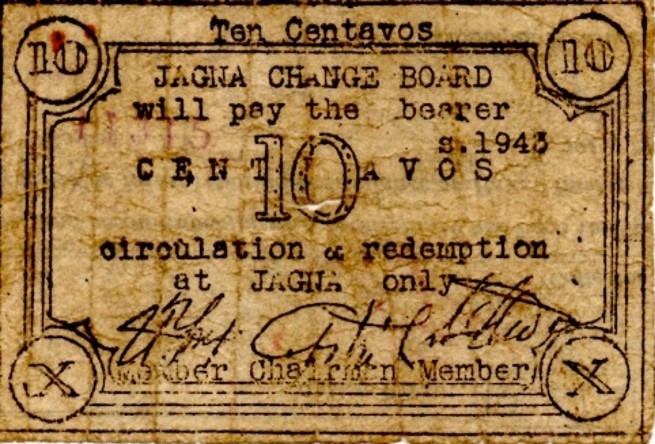 Ten Centavos
10 10
JAGNA CHANGE BOARD
will pay the bearer
11315
s.1943
CENTAVOS
10
circulation & redemption
at JAGNA only
Member Chairman Member
X X